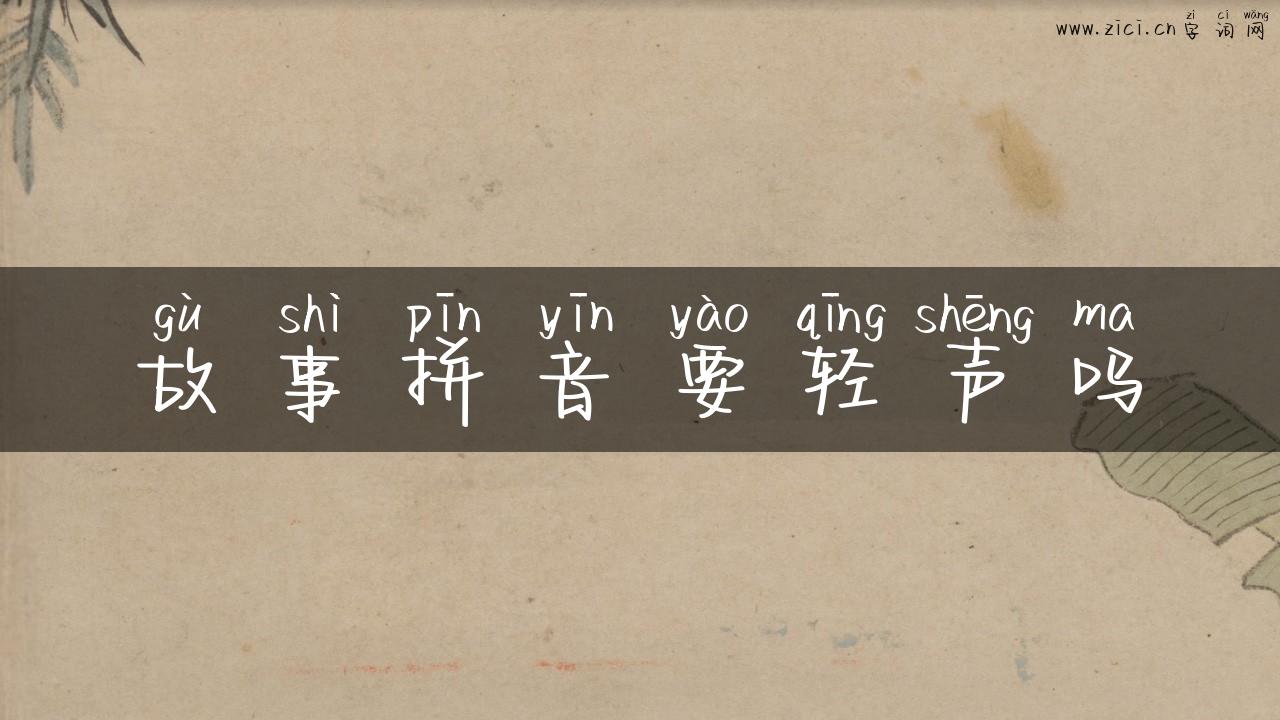 zì cí wǎng
www.zici.cn 字词网
gù shì pīn yīn yào qīng shēng ma
故事拼音要轻声吗